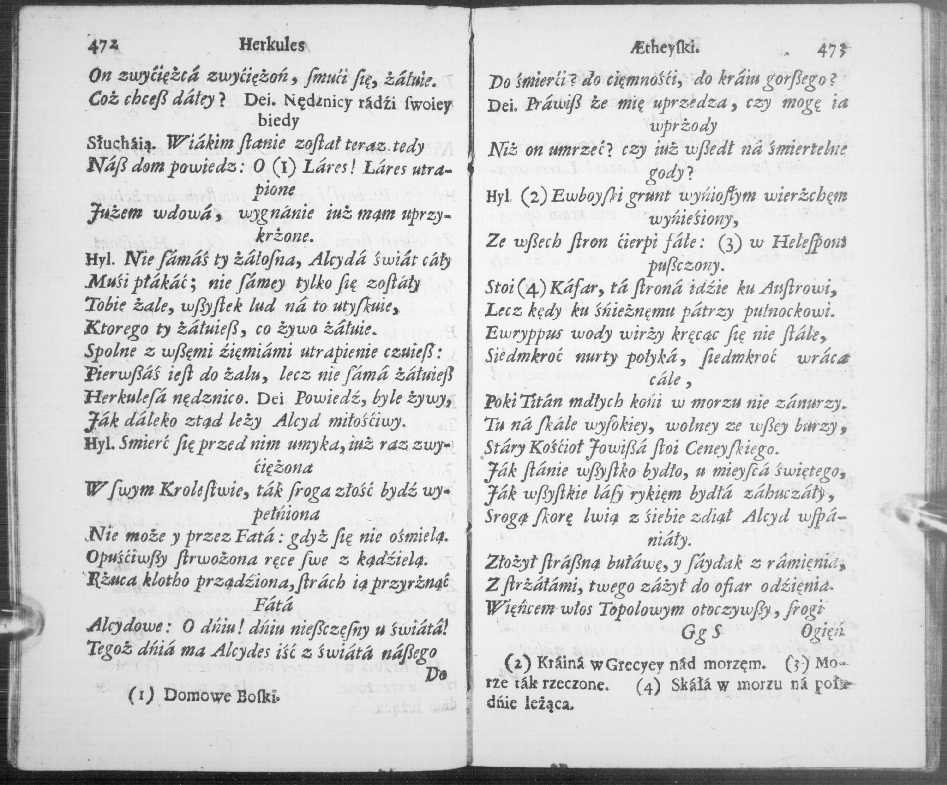 472 Herkules
On zwyćiężcá zwyćiężoń, ſmući ſię, żáłuie.
Coż chceß dáley? Dei. Nędznicy rádźi ſwoiey
biedy
Słucháią. Wiákim ſtanie zoſtał teraz tedy
Náß dom powiedz: O (1) Láres! Láres utra-
pione
Jużem wdowá, wygnánie iuż mąm uprzy-
krżone.
Hyl. Nie ſámáś ty żáłoſna, Alcydá świát cáły
Muśi płákáć; nie ſámey tylko ſię zoſtáły
Tobie żale, wſzyſtek lud ná to utyſkuie,
Ktorego ty żáłuieß, co żywo żáłuie.
Spolne z wßęmi źięmiámi utrapienie czuieß:
Pierwßáś ieſt do żalu, lecz nie ſámá żáłuieß
Herkuleſá nędznico. Dei Powiedź, byle żywy,
Ják dáleko ztąd leży Alcyd miłośćiwy.
Hyl. Smierć ſię przed nim umyka, iuż raz zwy-
ćiężona
W ſwym Kroleſtwie, ták ſroga złość bydź wy-
pełńiona
Nie może y przez Fatá: gdyż ſię nie ośmielą.
Opuśćiwßy ſtrwożona ręce ſwe z kądźielą.
Rżuca klotho prządźiona, ſtrách ią przyrżnąć
Fátá
Alcydowe: O dńiu! dńiu nießczęſny u świátá!
Tegoż dńiá ma Alcydes iść z świátá náßego
Do
(1) Domowe Boſki.
Ætheyſki. 473
Do śmierći? do ćięmnośći, do kráiu gorßego?
Dei. Práwiß że mię uprzedza, czy mogę ia
wprżody
Niż on umrzeć? czy iuż wßedł ná śmiertelne
gody?
Hyl. (2) Ewboyſki grunt wyńioſłym wierżchęm
wyńieśiony,
Ze wßech ſtron ćierpi fále: (3) w Heleſpont
pußczony.
Stoi (4) Káfar, tá ſtroná idźie ku Auſtrowi,
Lecz kędy ku śnieżnęmu pátrzy pułnockowi.
Ewryppus wody wirży kręcąc ſię nie ſtále,
Siedmkroć nurty połyká, ſiedmkroć wráca
cále,
Poki Titán mdłych końi w morzu nie zánurzy.
Tu ná ſkále wyſokiey, wolney ze wßey burzy,
Stáry Kośćioł Jowißá ſtoi Ceneyſkiego.
Ják ſtánie wßyſtko bydło, u mieyſcá świętego,
Ják wßyſtkie láſy rykięm bydłá záhuczáły,
Srogą ſkorę lwią z śiebie zdiął Alcyd wſpá-
niáły.
Złożył ſtráßną buławę, y ſáydak z rámięnia,
Z ſtrżáłámi, twego záżył do ofiar odźięnia.
Więńcem włos Topolowym otoczywßy, ſrogi
Gg 5 Ogięń
(2) Kráiná w Grecyey nád morzęm. (3) Mo-
rze ták rzeczone. (4) Skáłá w morzu ná połu-
dńie leżąca.